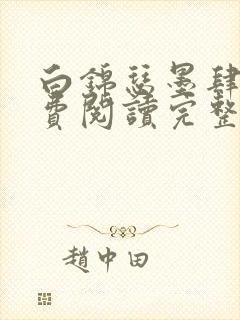 白錦瑟墨肆
費閱讀完整
趙中田